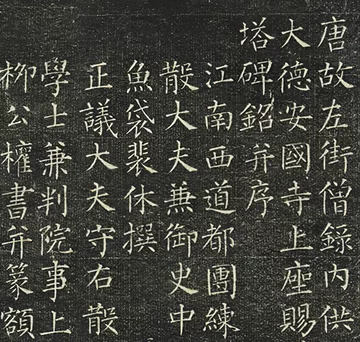 唐故左街僧錄內供
大德安國寺上座賜
塔碑銘并序
江南西道都團練
散大夫兼御史中
魚袋裴休撰
正議大夫守右散
學士兼判院事上
柳公權書并篆額